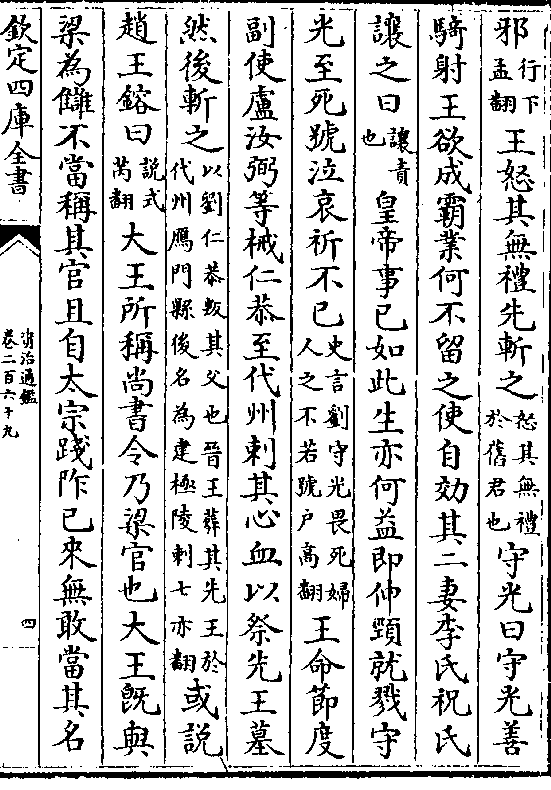 邪行下孟翻王怒其無禮先斬之怒其無禮於舊君也守光曰守光善
騎射王欲成霸業何不留之使自効其二妻李氏祝氏
讓之曰讓責也皇帝事已如此生亦何益即伸頸就戮守
光至死號泣哀祈不已史言劉守光畏死婦人之不若號戶高翻王命節度
副使盧汝弼等械仁恭至代州刺其心血以祭先王墓
然後斬之以劉仁恭叛其父也晉王葬其先王於代州鴈門縣後名為建極陵刺七亦翻或說
趙王鎔曰說式芮翻大王所稱尚書令乃梁官也大王旣與
梁為讎不當稱其官且自太宗踐阼已來無敢當其名
欽定四庫全書
資治通鑑
卷二百六十九
四